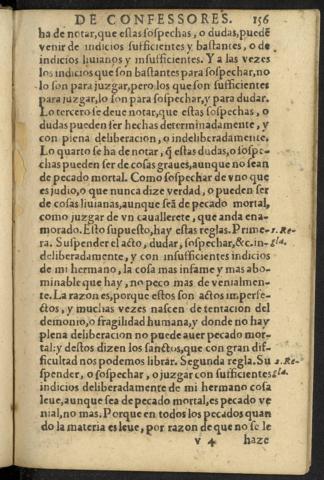 DE CONFESSORES. 156
ha de notar, que estas sospechas, o dudas, puedẽ
venir de indicios sufficientes y bastantes, o de
indicios liuianos y insufficientes. Y a las vezes
los indicios que son bastantes para sospechar, no
lo son para juzgar, pero los que son sufficientes
para juzgar, lo son para sospechar, y para dudar.
Lo tercero se deue notar, que estas sospechas, o
dudas pueden ser hechas determinadamente, y
con plena deliberacion, o indeliberadamente.
Lo quarto se ha de notar, q̃ estas dudas, o sospe-
chas pueden ser de cosas graues, aunque no sean
de pecado mortal. Como sospechar de vno que
es judio, o que nunca dize verdad, o pueden ser
de cosas liuianas, aunque seã de pecado mortal,
como juzgar de vn cauallerete, que anda ena-
morado. Esto supuesto, hay estas reglas. Prime- 1. Re-
ra. Suspender el acto, dudar, sospechar, &c. in- gla.
deliberadamente, y con insufficientes indicios
de mi hermano, la cosa mas infame y mas abo-
minable que hay, no peco mas de venialmen-
te. La razon es, porque estos son actos imperfe-
ctos, y muchas vezes nascen de tentacion del
demonio, o fragilidad humana, y donde no hay
plena deliberacion no puede auer pecado mor-
tal: y destos dizen los sanctos, que con gran dif-
ficultad nos podemos librar. Segunda regla. Su 2. Re-
spender, o sospechar, o juzgar con sufficientes gla.
indicios deliberadamente de mi hermano cosa
leue, aunque sea de pecado mortal, es pecado ve
nial, no mas. Porque en todos los pecados quan
do la materia es leue, por razon de que no se le
v 4 haze